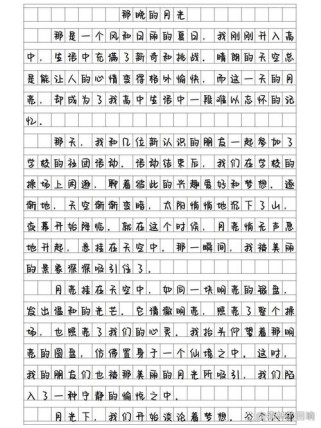 那晚的月光
那是一个风和日丽的夏日，我刚刚升入高
中，生活中充满了新奇和挑战。晴朗的天空总
是能让人的心情变得格外愉快，而这一天的月
亮，却成为了我高中生活中一段难以忘怀的记
忆。
那天，我和几位新认识的朋友一起参加了
学校的社团活动。活动结束后，我们在学校的
操场上闲逛，聊着彼此的兴趣爱好和梦想。逐
渐地，天空渐渐变暗，太阳悄悄地沉下了山，
夜幕开始降临。就在这个时候，月亮悄无声息
地升起，悬挂在天空中。那一瞬间，我被美丽
的景象深深吸引住了。
月亮挂在天空中，如同一块明亮的磁盘，
发出温和的光芒。它清澈明亮，照亮了整个操
场，也照亮了我们的心灵。我抬头仰望着那明
亮的圆盘，仿佛置身于一个仙境之中。这时，
我的朋友们也被那美丽的月光所吸引，我们陷
入了一种宁静的愉悦之中。
月光下，我们开始谈论着梦想，分